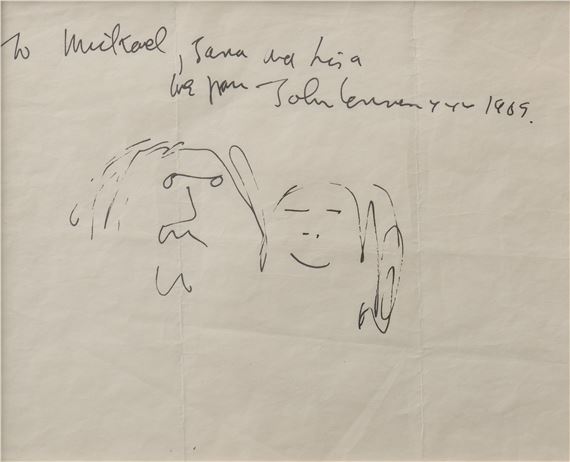 To Michael, Sara and Lisa
love from John Lennon xxx 1969.